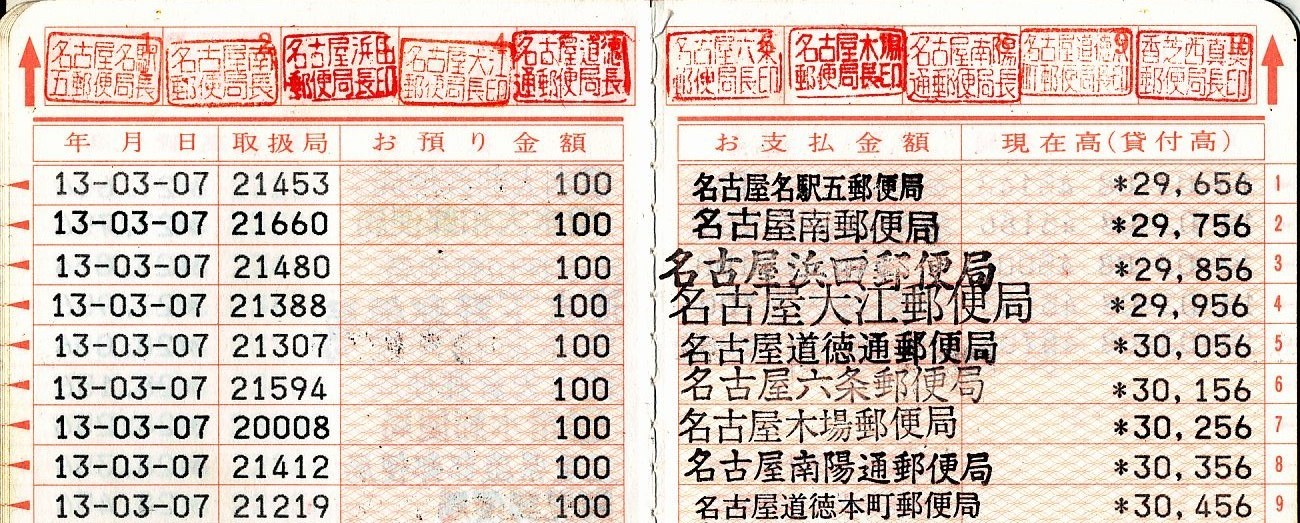 名古屋名駅五郵便局長 名古屋南郵便局長 名古屋浜田郵便局長印 名古屋大江郵便局長印 名古屋道徳通郵便局長 名古屋六条郵便局長印 名古屋木場郵便局長印 名古屋南陽通郵便局長 香芝西真美郵便局長印
年月日 取扱局 お預り金額 お支払金額 現在高(貸付高)
13-03-07 21453 100 名古屋名駅五郵便局 *29,656 1
13-03-07 21660 100 名古屋南郵便局 *29,756 2
13-03-07 21480 100 名古屋浜田郵便局 *29,856 3
13-03-07 21388 100 名古屋大江郵便局 *29,956 4
13-03-07 21307 100 名古屋道徳通郵便局 *30,056 5
13-03-07 21594 100 名古屋六条郵便局 *30,156 6
13-03-07 20008 100 名古屋木場郵便局 *30,256 7
13-03-07 21412 100 名古屋南陽通郵便局 *30,356 8
13-03-07 21219 100 名古屋道徳本町郵便局 *30,456 9